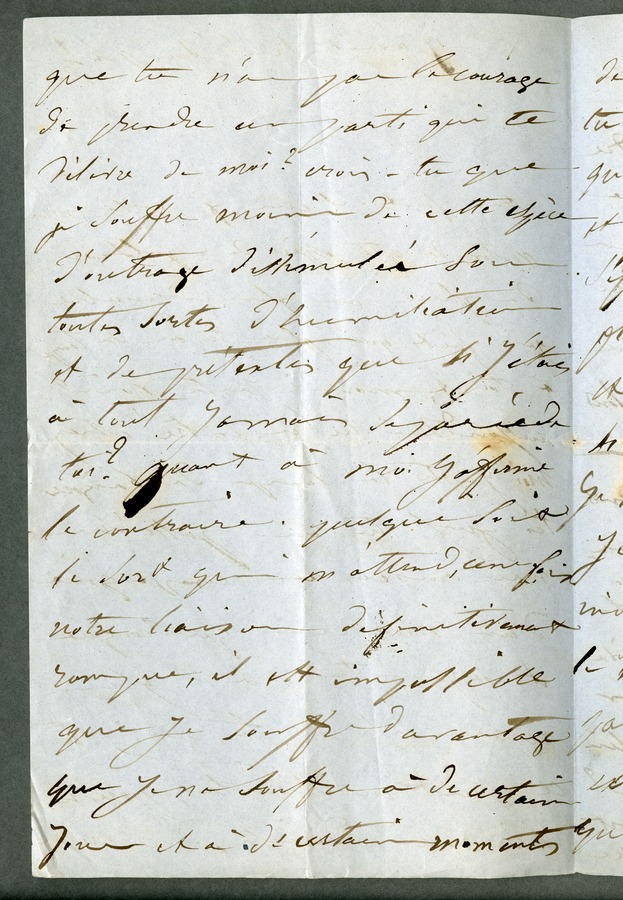 que tu n'as pas le courage
de prendre un parti qui te
délivre de moi? crois-tu que
je souffre moins de cette espèce
d'outrage dissimulée sous
toutes sortes d'humiliations
et de prétextes que si j'étais
à tout jamais séparée de
toi? quant à moi j'affirme
le contraire. quelque soit
le sort qui m'attend, une fois
notre liaison définitivement
rompue, il est impossible
que je souffre davantage
que je ne souffre à de certains
jours et à de certains moments